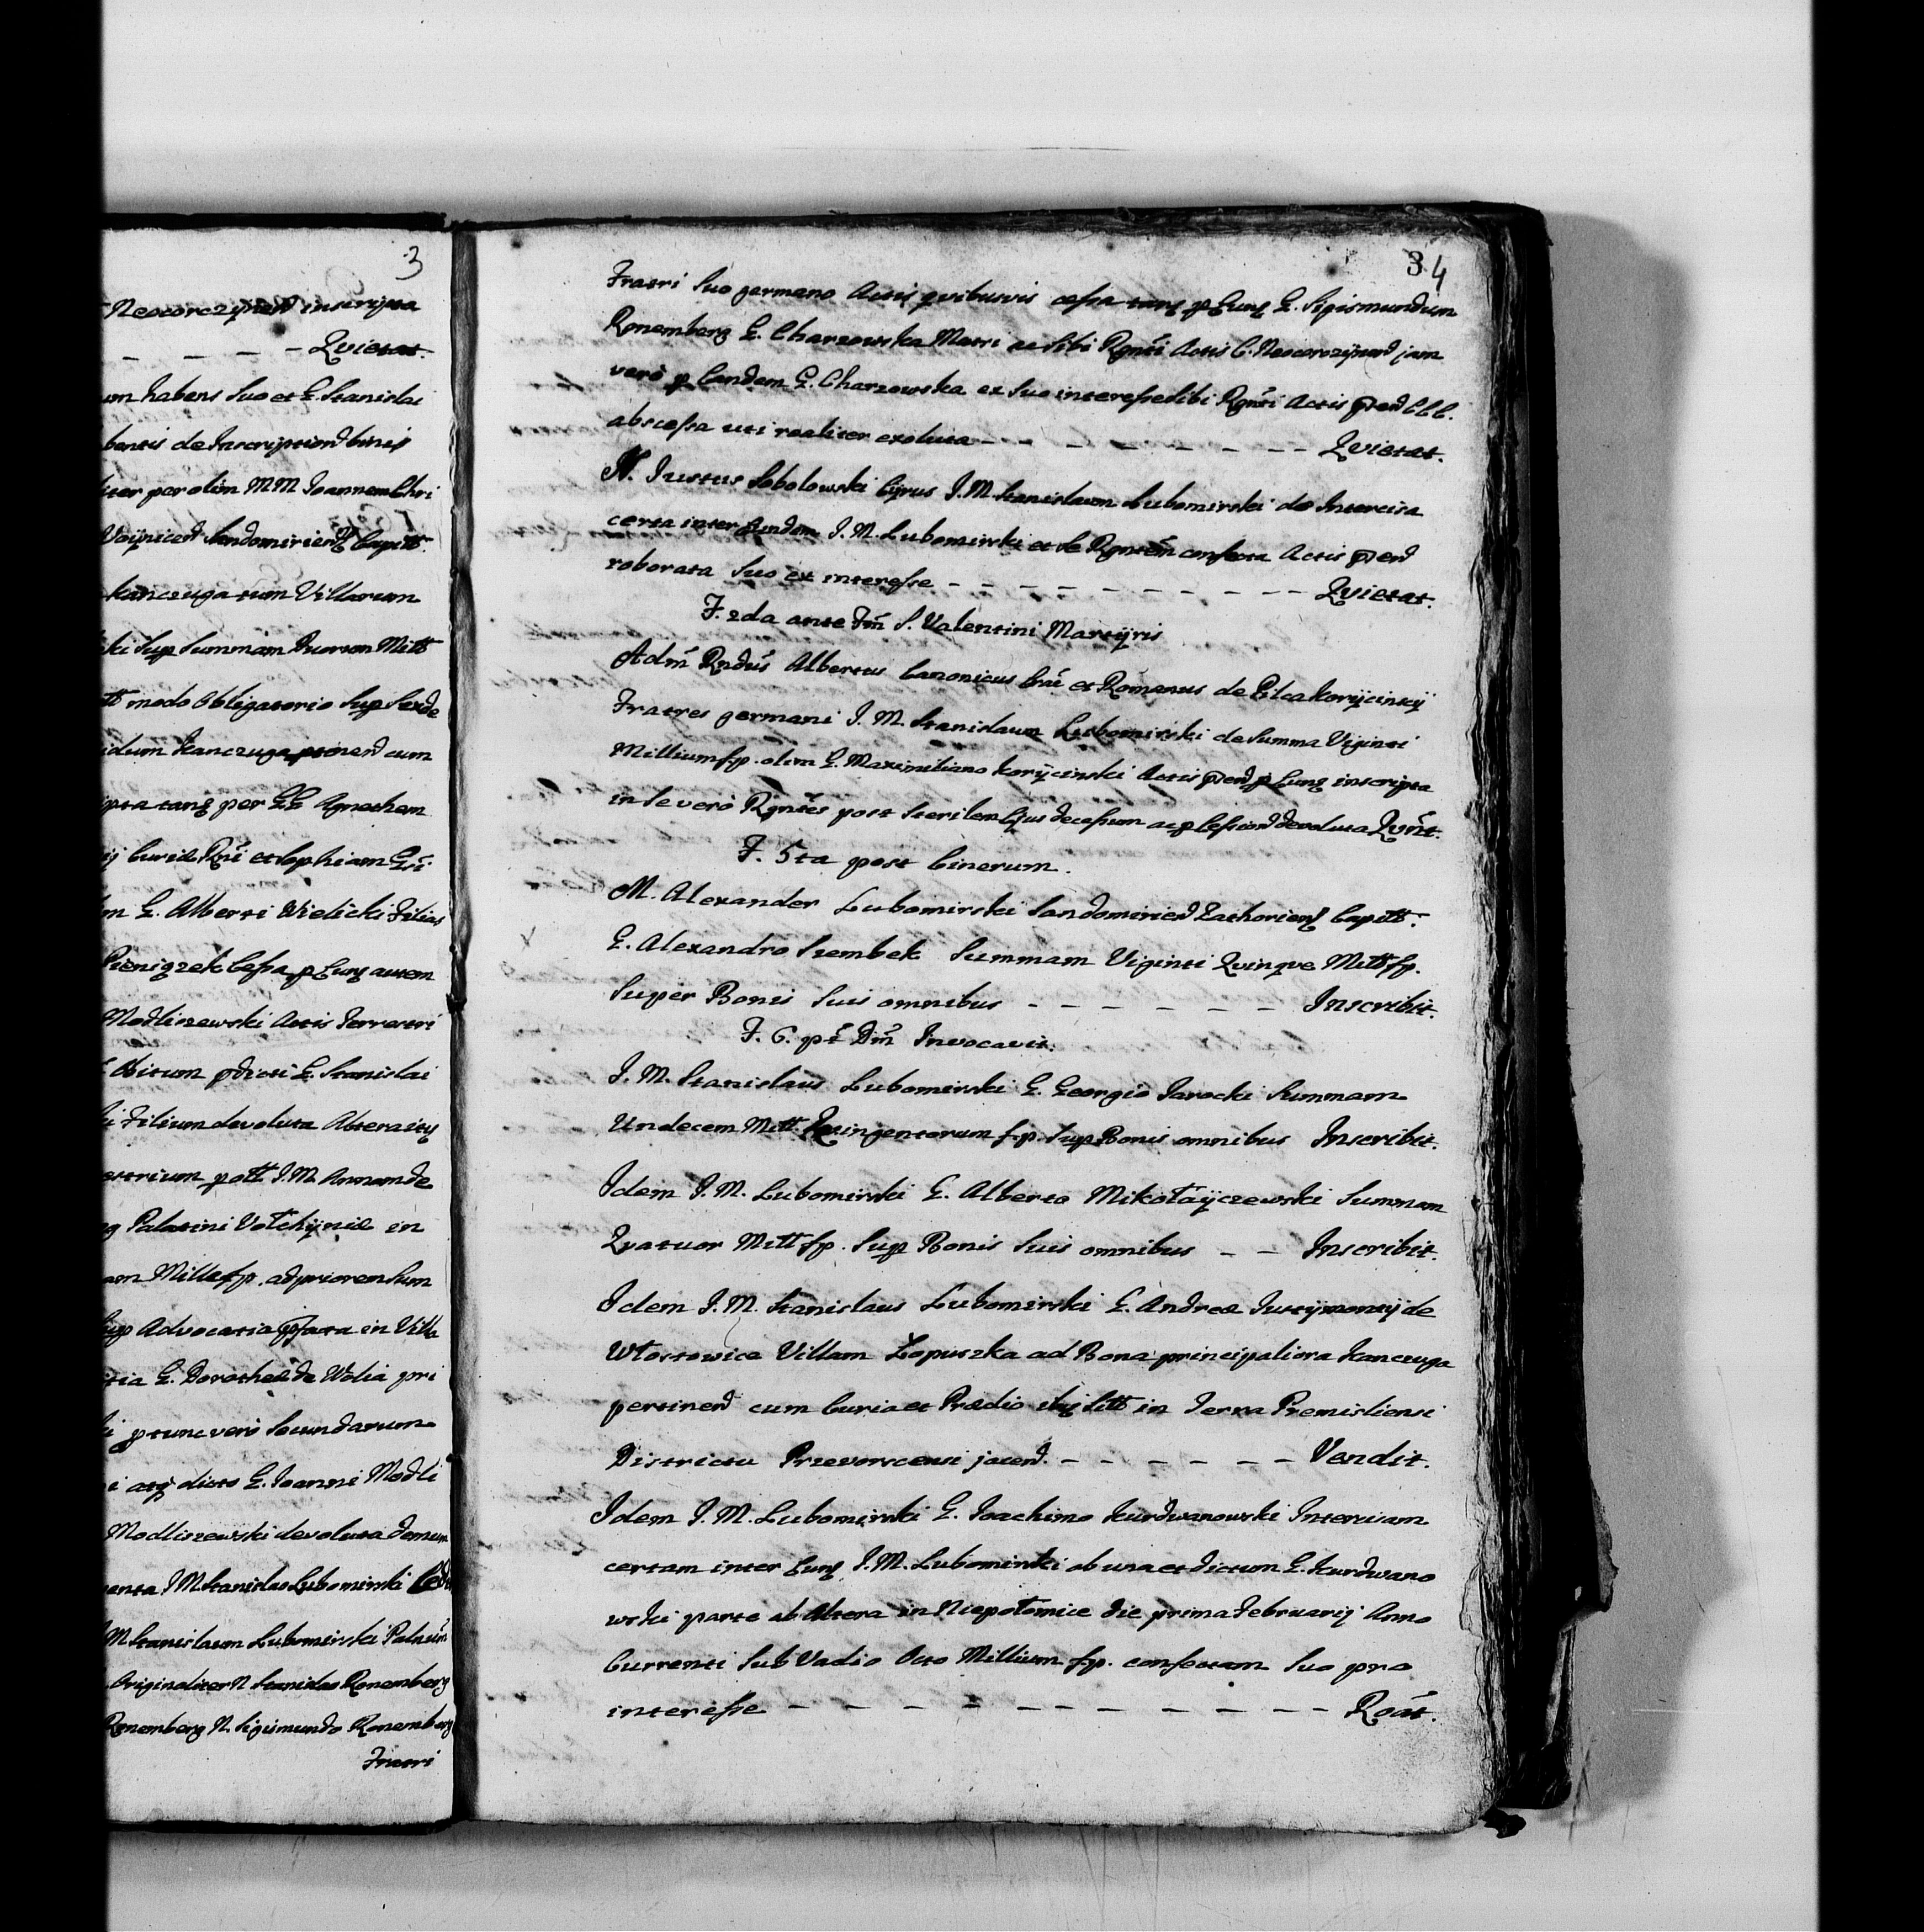 3
Neocorczynen inscripta
– – – – Qvietat.
um habens Suo et G. Stanislai
bentis de Inscription binis
iter per olim MM Joannem Chri
Voynicen Sandomirien Capitt.
Kanczuga tum Villarum
ki Sup Summam Duorum Mill
modo Obligatorio Sup Sexde
idum Kanczuga ptinen cum
ipta tanq per GG Agnethem
ij Curiæ Rni et Sophiam Gri
m G. Alberti Wielicki Filias
Pieniązek Cessa p Eunq autem
Modliszewski Actis Terrestri
Obitum pdicti G. Stanislai
i Filium devoluta Altera itq
estrium pott J.M. Annam de
g Palatini Volhyniæ in
am Mille fp. ad priorem Sum
Sup Advocatia pfata in Villa
tia G. Dorotheæ de Wolia pri
i ptunc vero Secundarum
i atq dicto G. Joanni Modli
Modliszewski devoluta demum
enta J M Stanislao Lubomirski Cedit
M Stanislaum Lubomirski Palnum
Originaliter N Stanislao Ronemberg
Ronemberg N. Sigismundo Ronemberg
Fratri
34
Fratri Suo germano Actis qvibusvis cessa tanq p Eunq G. Sigismundum
Ronemberg G. Charzowska Matri ac Sibi Rgnti Actis C. Neocorczynen jam
verò p Eandem G. Charzowska ex Suo interesse Sibi Rgnti Actis pñen CCC.
abscessa uti realiter exoluta – – – – – – – – Qvietat.
N. Justus Sobolowski Cyrus J.M. Stanislaum Lubomirski de Intercisa
certa inter Eundem J.M. Lubomirski et Se Rgntem confecta Actis pñen
roborata Suo ex interesse – – – – – – – – – – Qvietat.
F. 2da ante Fm S. Valentini Martyris
Adm Rndus Albertus Canonicus Crac et Romanus de Pilca Korycinscy
Fratres germani J. M. Stanislaum Lubomirski de Summa Viginti
Millium fp. olim G. Maximiliano Korycinski Actis pñen p Eunq inscripta
in Se verò Rgntes post Sterilem Ejus decessum ac p Cession devoluta Qvnt.
F. 5ta post Cinerum.
M. Alexander Lubomirski Sandomirien Zathorien Capitt.
G. Alexandro Szembek Summam Viginti Qvinqve Mill fp.
Super Bonis Suis omnibus – – – – – – Inscribit.
F. 6. pt Dm Invocavit.
J. M. Stanislaus Lubomirski G. Georgio Jarocki Summam
Undecem Mill. Qvingentorum fp. Sup Bonis omnibus Inscribit.
Idem J. M. Lubomirski G. Alberto Mikołayczewski Summam
Qvatuor Mill fp. Sup Bonis Suis omnibus – – Inscribit.
Idem J. M. Stanislaus Lubomirski G. Andreæ de
Włostowice Villam Łopuszka ad Bona principaliora Kanczuga
pertinen cum Curia et Prædio ibiq Sitt in Terra Premisliensi
Districtu Przevorscensi jacen. – – – – – – Vendit.
Idem J. M. Lubomirski G. Joachimo Kurdwanowski Intercisam
certam inter Eunq J. M. Lubomirski ab una et dictum G. Kurdwano
wski parte ab Altera in Niepołomice die prima Februarij Anno
Currenti Sub Vadio Octo Millium fp. confectam Suo pro
interesse – – – – – – – – – – – – Roat.